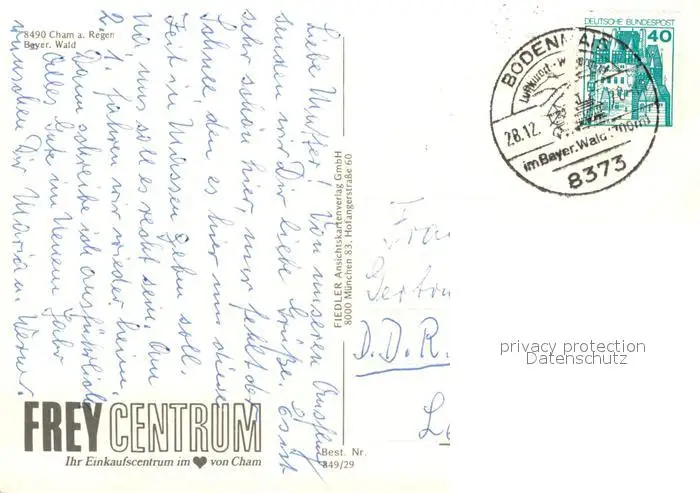 8490 Cham a. Regen
Bayer. Wald
Liebe Mutter! Von unseren Ausflug
senden wir Dir liebe Grüße. Es ist
sehr schön hier, nur fehlt der
Schnee, den es hier um diese
Zeit in Massen geben soll.
Na, uns soll es recht sein. Am
2. 1. fahren wir wieder heim.
Dann schreibe ich ausführlich
Alles Gute im Neuen Jahr
wünschen Dir Maria u. Werner.
FREY CENTRUM
Ihr Einkaufscentrum im ♥ von Cham
FIEDLER Ansichtskartenverlag GmbH
8000 München 83, Hofangerstraße 60
Best. Nr.
849/29
DEUTSCHE BUNDESPOST
40
BODENMAIS
28.12.
im Bayer. Wald
8373
Frau
Gertru
D.D.R.
Le
privacy protection
Datenschutz